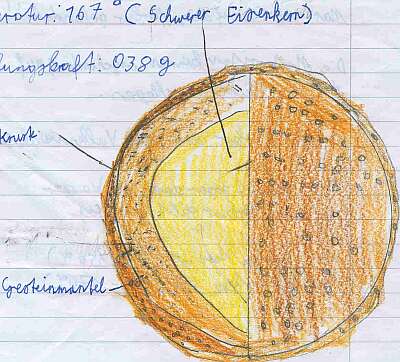 eratur: 167° (Schwerer Eisenkern)
ungskraft: 038 g
Gesteinmantel